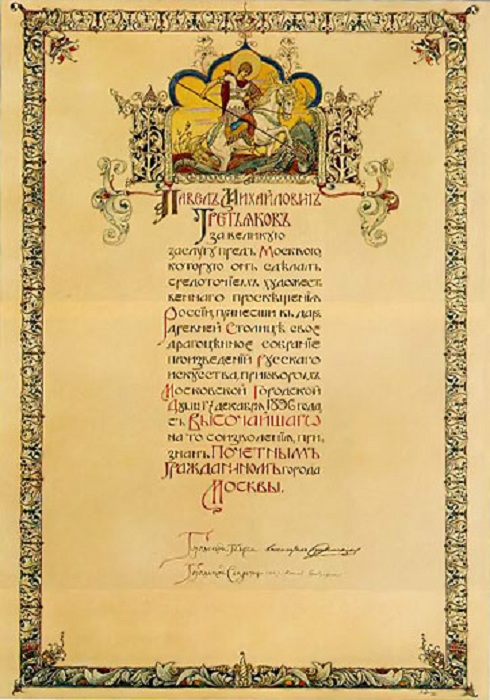 Павелъ Михайловичъ
Третьяковъ
за великую
заслугу предъ Москвою,
которую онъ сдѣлалъ
средоточiемъ художест
веннаго просвѣщенiя
Россiи, принесши въ даръ
древней Столицѣ свое
драгоцѣнное собранiе
произведенiй русскаго
искусства, приговоромъ
Московской Городской
Думы 17 декабря 1896 года,
съ Высочайшаго
на то соизволенiя, при
знанъ Почетнымъ
Гражданиномъ города
Москвы.
Городской Голова
Городской Секретарь